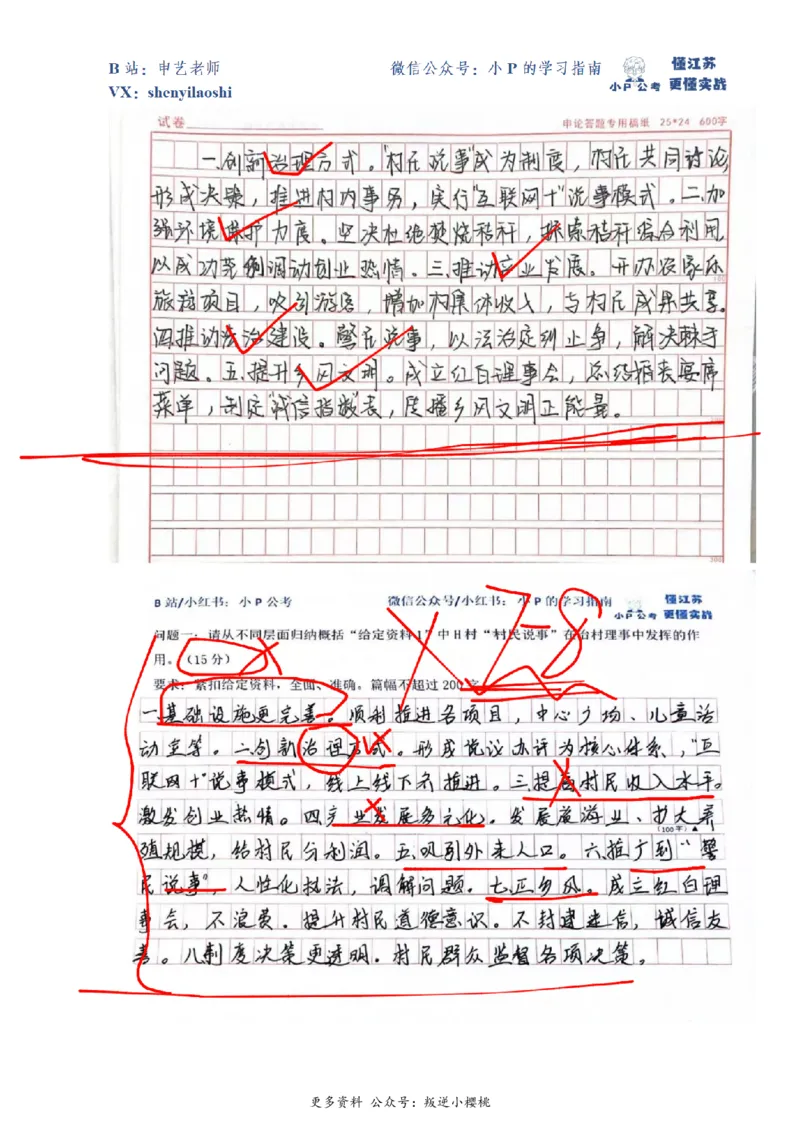 B 站：申艺老师
微信公众号：小 P 的学习指南
懂江苏
小P公考 更懂实战
VX：shenyilaoshi
试卷
申论答题专用稿纸 25*24 600字
一.创新治理方式。"村民说事"成为制度，村民共同讨论，
形成决策，推进村内事务，实行"互联网+"说事模式。二.加
强环境保护力度。坚决杜绝焚烧秸秆，探索秸秆综合利用，
以成功案例调动创业热情。三.推动产业发展。开办农家乐
旅游项目，吸引游客，增加村集体收入，与村民成果共享。
四推动法治建设。警民说事，以法治定纷止争，解决棘手
问题。五.提升乡风文明。成立红白理事会，总结推表宴席
菜单，制定"诚信指数"表，展播乡风文明正能量。
300
B 站/小红书：小 P 公考
微信公众号/小红书：小 P 的学习指南
懂江苏
小P公考 更懂实战
7-8
问题一：请从不同层面归纳概括"给定资料 1"中 H 村"村民说事"在治村理事中发挥的作
用。（15 分）
要求：紧扣给定资料，全面、准确。篇幅不超过 200 字
一.基础设施更完善。顺利推进各项目，中心广场、儿童活
动室等。二创新治理方式。形成说议办评为核心体系，"互
联网+"说事模式，线上线下齐推进。三.提高村民收入水平。
激发创业热情。四产业发展多元化。发展旅游业、扩大养
（100字）▲
殖规模，给村民分利润。五.吸引外来人口。六.推广到"警
民说事"，人性化执法，调解问题。七.正乡风。成立红白理
事会，不浪费。提升村民道德意识。不封建迷信，诚信友
善。八制度决策更透明。村民群众监督各项决策。
更多资料 公众号：叛逆小樱桃